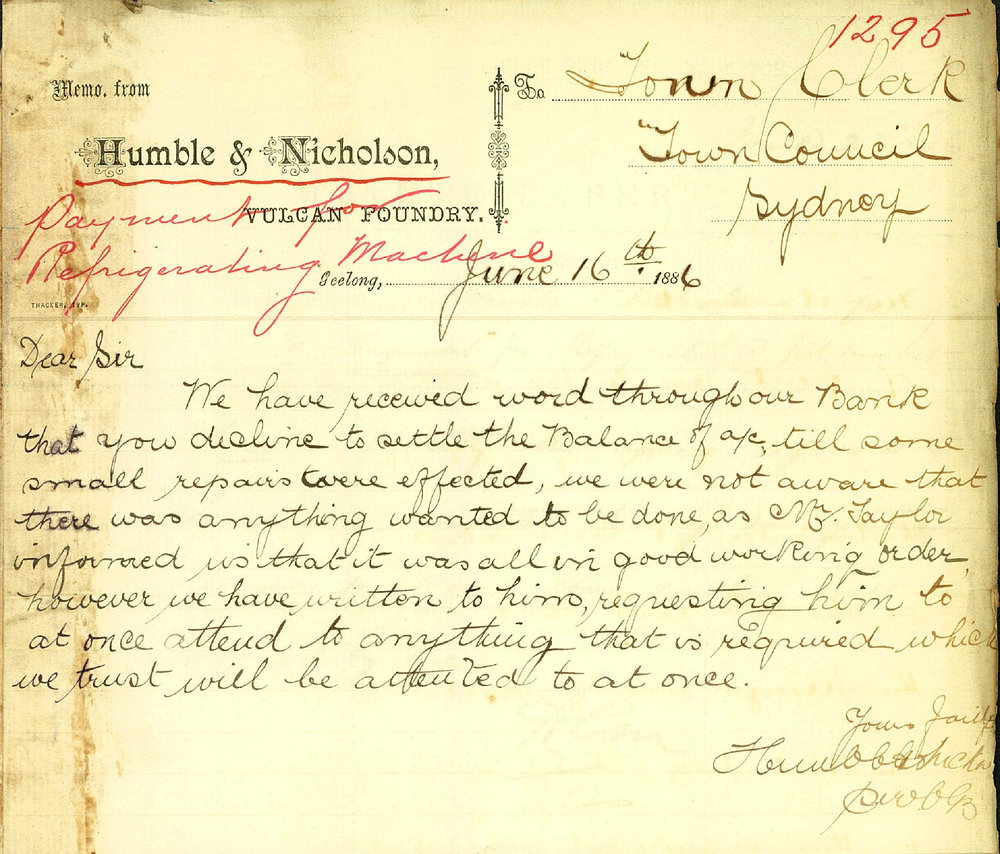 1295
Memo. from
To Town Clerk
Humble & Nicholson,
Town Council
Sydney
Payment for
VULCAN FOUNDRY.
Refrigerating Machine
Geelong, June 16th. 1886
THACKER, TYP.
Dear Sir
We have received word through our Bank
that you decline to settle the Balance of a/c, till some
small repairs were effected, we were not aware that
there was anything wanted to be done, as Mr. Taylor
informed us that it was all in good working order,
however we have written to him, requesting him to
at once attend to anything that is required which
we trust will be attented to at once.
Yours faithf
Humble & Nicho